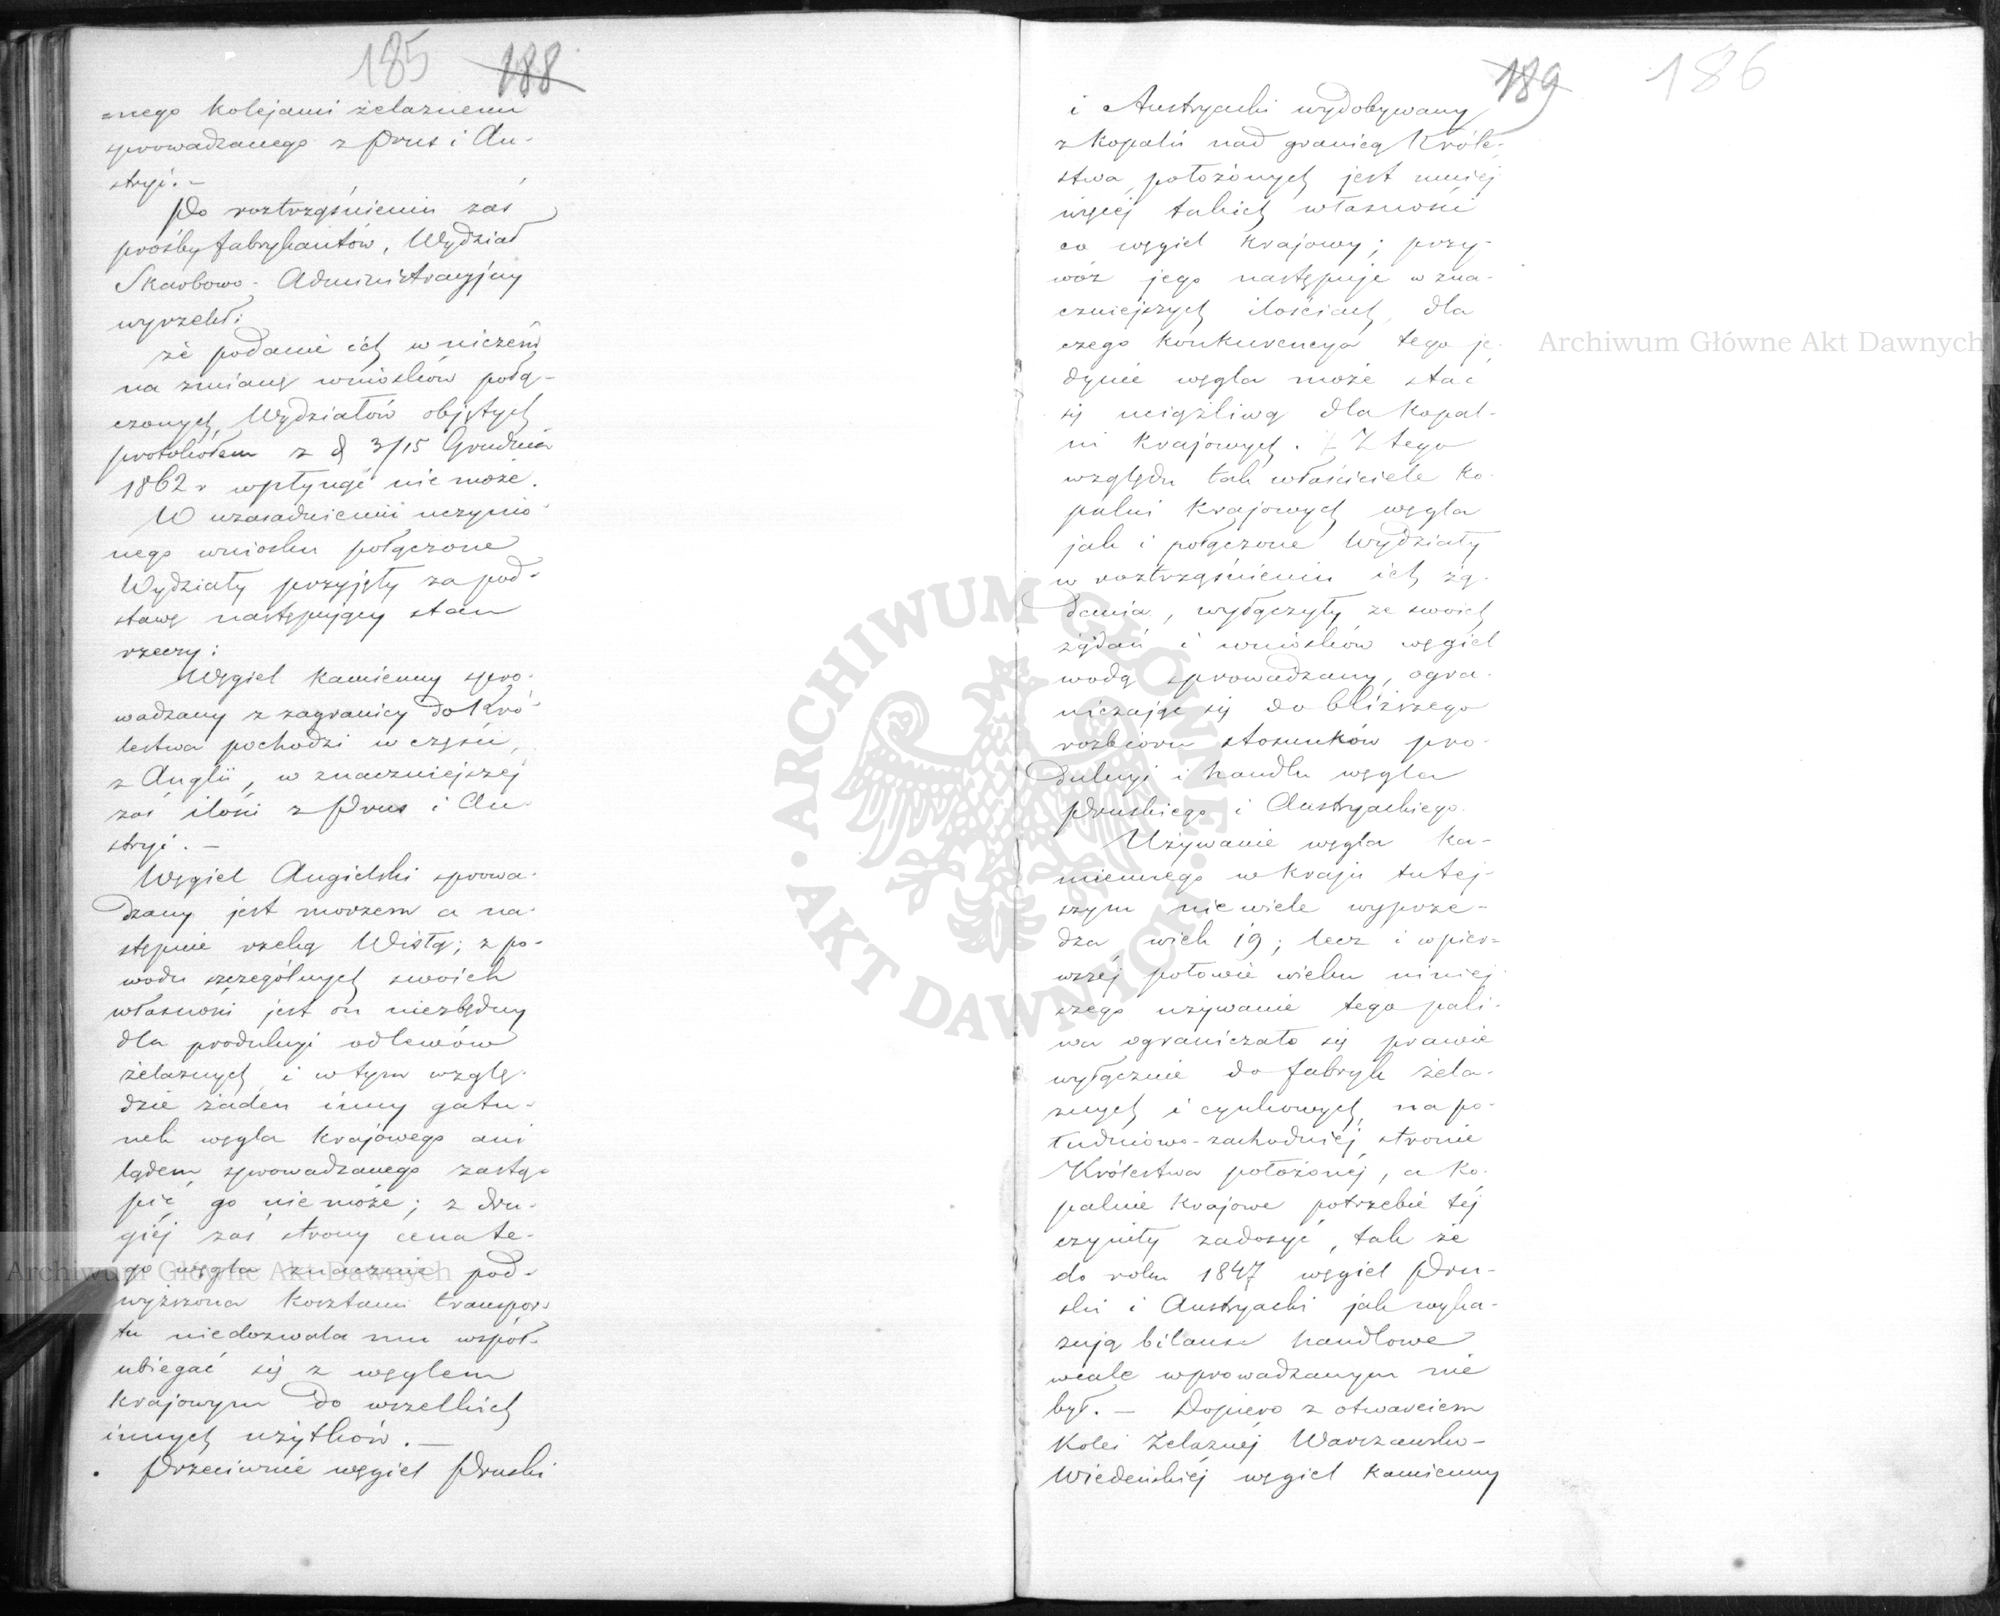 185 188
=nego kolejami żelaznemi
sprowadzanego z Prus i Au-
stryi. –
Po roztrząśnieniu zaś
prośby fabrykantów, Wydział
Skarbowo-Administracyjny
wyrzekł:
że podanie ich w niczém
na zmianę wniosków połą-
czonych Wydziałów objętych
protokółem z d 3/15 Grudnia
1862 r wpłynąć nie może.
W uzasadnieniu uczynio-
nego wniosku połączone
Wydziały przyjęły za pod-
stawę następujący stan
rzeczy:
Węgiel kamienny spro-
wadzany z zagranicy do Kró-
lestwa pochodzi w części,
z Anglii, w znaczniejszéj
zaś ilości z Prus i Au-
stryi. –
Węgiel Angielski sprowa-
dzany jest morzem a na-
stępnie rzeką Wisłą; z po-
wodu szczególnych swoich
własności jest on niezbędny
dla produkcyi odlewów
żelaznych i w tym wzglę-
dzie żaden inny gatu-
nek węgla krajowego ani
lądem sprowadzanego zastą-
pić go nie może; z dru-
giéj zaś strony cena te-
go węgla znacznie pod-
wyższona kosztami transpor-
tu niedozwala mu współ-
ubiegać się z węglem
krajowym do wszelkich
innych użytków. –
Przeciwnie węgiel Pruski
189 186
i Austryacki wydobywany
z kopalń nad granicą Króle-
stwa położonych jest mniéj
więcéj takich własności
co węgiel krajowy; przy-
wóz jego następuje w zna-
czniejszych ilościach, dla
czego konkurencya tego je-
dynie węgla może stać
się uciążliwą dla kopal-
ni krajowych. Z tego
względu tak właściciele ko-
palni krajowych węgla
jak i połączone Wydziały
w roztrząśnieniu ich żą-
dania, wyłączyły ze swoich
żądań i wniosków węgiel
wodą sprowadzany, ogra-
niczając się do bliższego
rozbioru stosunków pro-
dukcyi i handlu węgla
Pruskiego i Austryackiego.
Używanie węgla ka-
miennego w kraju tutej-
szym nie wiele wyprze-
dza wiek 19; lecz i w pier=
wszéj połowie wieku niniej
szego używanie tego pali-
wa ograniczało się prawie
wyłącznie do fabryk żela-
znych i cynkowych, na po-
łudniowo-zachodniéj stronie
Królestwa położonéj, a ko-
palnie krajowe potrzebie téj
czyniły zadosyć, tak że
do roku 1847 węgiel Pru-
ski i Austryacki jak wyka-
zują bilanse handlowe
wcale wprowadzanym nie
był. – Dopiero z otwarciem
Kolei Żelaznéj Warszawsko-
Wiedeńskiéj węgiel kamienny
Archiwum Główne Akt Dawnych
Archiwum Główne Akt Dawnych
ARCHIWUM GŁÓWNE AKT DAWNYCH